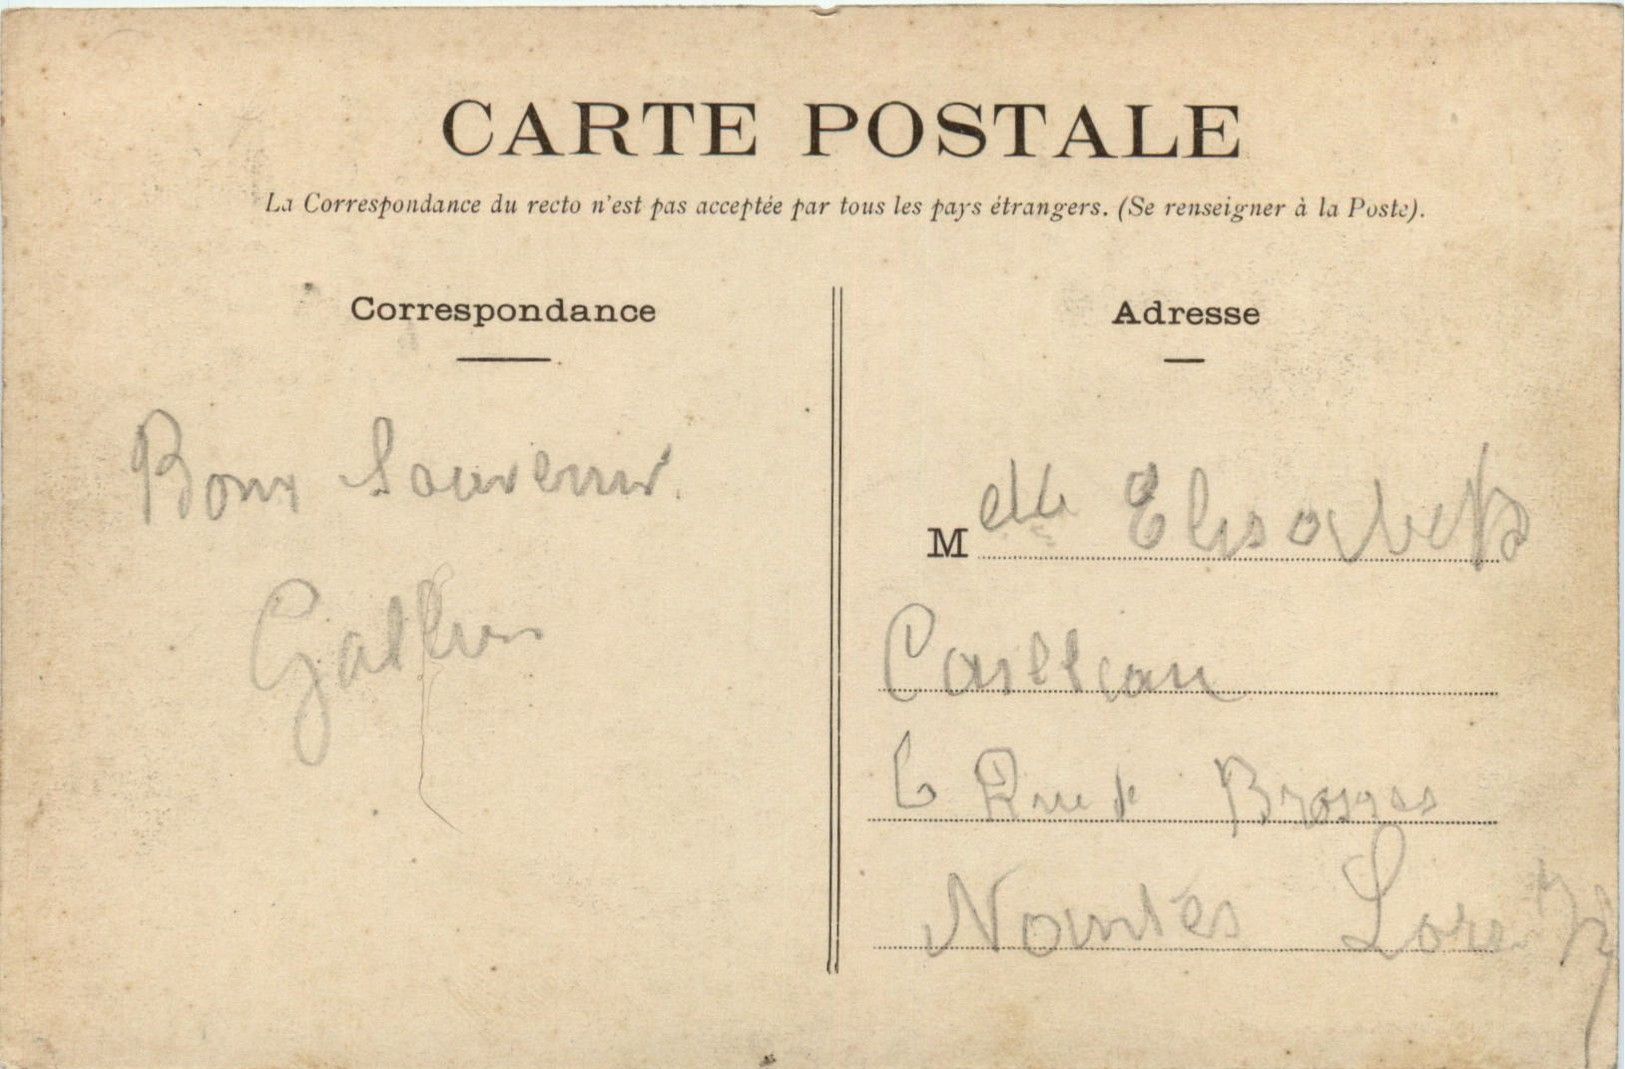 CARTE POSTALE
La Correspondance du recto n'est pas acceptée par tous les pays étrangers. (Se renseigner à la Poste).
Correspondance
Bons Souvenir.
Adresse
Melle Elisabeth
Cailleau
6 Rue
Nantes